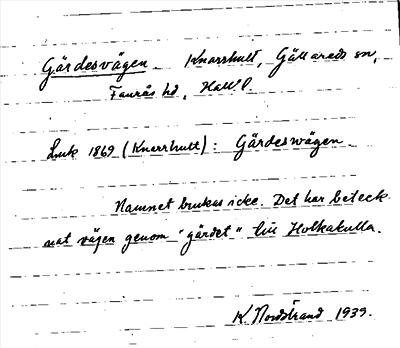 Gärdesvägen Knarrhult, Gällareds sn,
Faurås hd, Hall. l.
Lmk 1869 (Knarrhult): Gärdeswägen
Namnet brukas icke. Det har beteck
nat vägen genom "gärdet" till Holkakulla.
K. Nordstrand 1939.